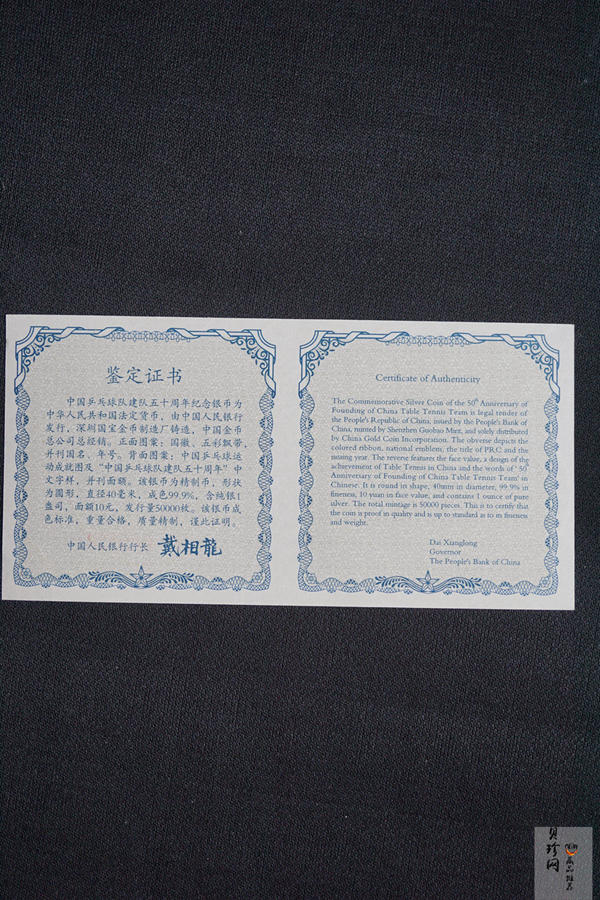 鉴定证书
中国乒乓球队建队五十周年纪念银币为
中华人民共和国法定货币，由中国人民银行
发行，深圳国宝金币制造厂铸造，中国金币
总公司总经销。正面图案：国徽、五彩飘带，
并刊国名、年号。背面图案：中国乒乓球运
动成就图及“中国乒乓球队建队五十周年”中
文字样，并刊面额。该银币为精制币，形状
为圆形，直径40毫米，成色99.9%，含纯银1
盎司，面额10元，发行量50000枚。该银币成
色标准，重量合格，质量精制，谨此证明。
中国人民银行行长 戴相龍
Certificate of Authenticity
The Commemorative Silver Coin of the 50th Anniversary of
Founding of China Table Tennis Team is legal tender of
the People's Republic of China, issued by the People's Bank of
China, minted by Shenzhen Guobao Mint, and solely distributed
by China Gold Coin Incorporation. The obverse depicts the
colored ribbon, national emblem, the title of PRC and the
issuing year. The reverse features the face value, a design of the
achievement of Table Tennis in China and the words of "50th
Anniversary of Founding of China Table Tennis Team" in
Chinese. It is round in shape, 40mm in diameter, 99.9% in
fineness, 10 yuan in face value, and contains 1 ounce of pure
silver. The total mintage is 50000 pieces. This is to certify that
the coin is proof in quality and is up to standard as to its fineness
and weight.
Dai Xianglong
Governor
The People's Bank of China
贝珍网
藏品推荐